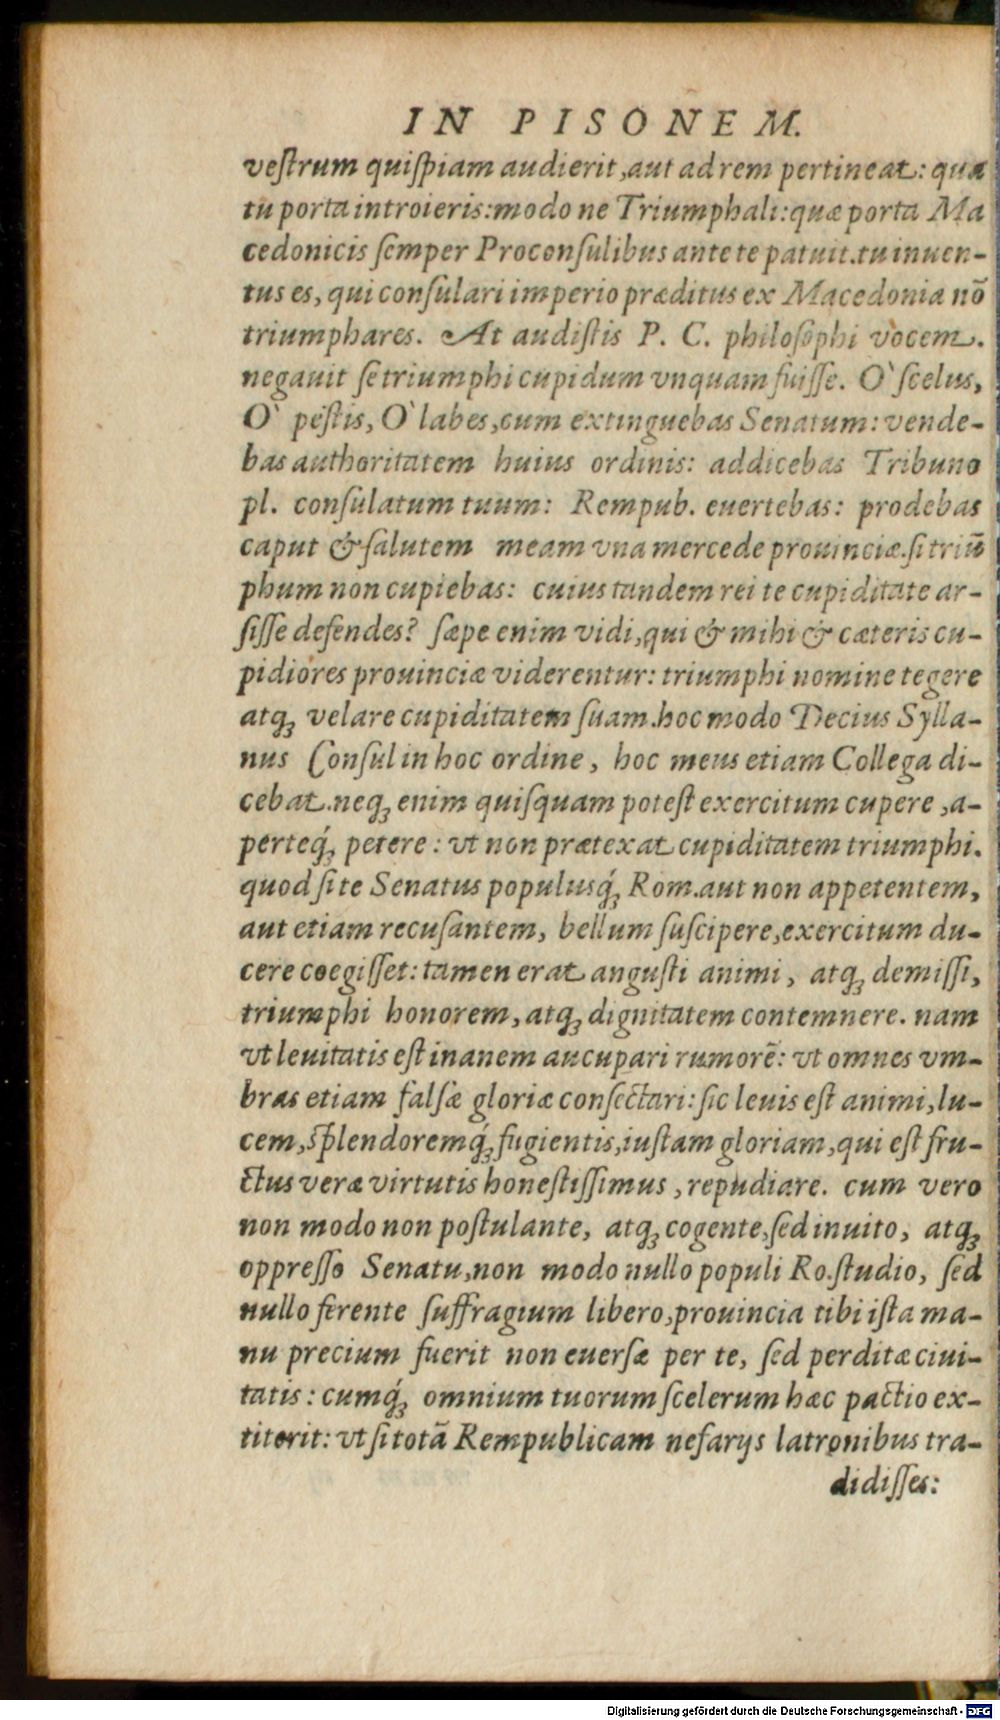 IN PISONEM.
veſtrum quiſpiam audierit, aut ad rem pertineat: qua
tu porta introieris: modo ne Triumphali: quæ porta Ma
cedonicis ſemper Proconſulibus ante te patuit. tu inuen-
tus es, qui conſulari imperio præditus ex Macedonia nō
triumphares. At audiſtis P. C. philoſophi vocem.
negauit ſe triumphi cupidum vnquam fuiſſe. O` ſcelus,
O` peſtis, O` labes, cum extinguebas Senatum: vende-
bas authoritatem huius ordinis: addicebas Tribuno
pl. conſulatum tuum: Rempub. euertebas: prodebas
caput & ſalutem meam vna mercede prouinciæ. ſi triū
phum non cupiebas: cuius tandem rei te cupiditate ar-
ſiſſe defendes? ſæpe enim vidi, qui & mihi & cæteris cu-
pidiores prouinciæ viderentur: triumphi nomine tegere
atq; velare cupiditatem ſuam. hoc modo Decius Sylla-
nus Conſul in hoc ordine, hoc meus etiam Collega di-
cebat. neq; enim quiſquam poteſt exercitum cupere, a-
perteq́; petere: vt non prætexat cupiditatem triumphi.
quod ſi te Senatus populusq́; Rom. aut non appetentem,
aut etiam recuſantem, bellum ſuſcipere, exercitum du-
cere coegiſſet: tamen erat anguſti animi, atq; demiſſi,
triumphi honorem, atq; dignitatem contemnere. nam
vt leuitatis eſt inanem aucupari rumorē: vt omnes vm-
bras etiam falſæ gloriæ conſectari: ſic leuis eſt animi, lu-
cem, ſplendoremq́; fugientis, iuſtam gloriam, qui eſt fru-
ctus veræ virtutis honeſtiſſimus, repudiare. cum vero
non modo non poſtulante, atq; cogente, ſed inuito, atq;
oppreſſo Senatu, non modo nullo populi Ro. ſtudio, ſed
nullo ferente ſuffragium libero, prouincia tibi iſta ma-
nu precium fuerit non euerſæ per te, ſed perditæ ciui-
tatis: cumq́; omnium tuorum ſcelerum hæc pactio ex-
titerit: vt ſi totā Rempublicam nefarijs latronibus tra-
didiſſes:
Digitalisierung gefördert durch die Deutsche Forschungsgemeinschaft - DFG